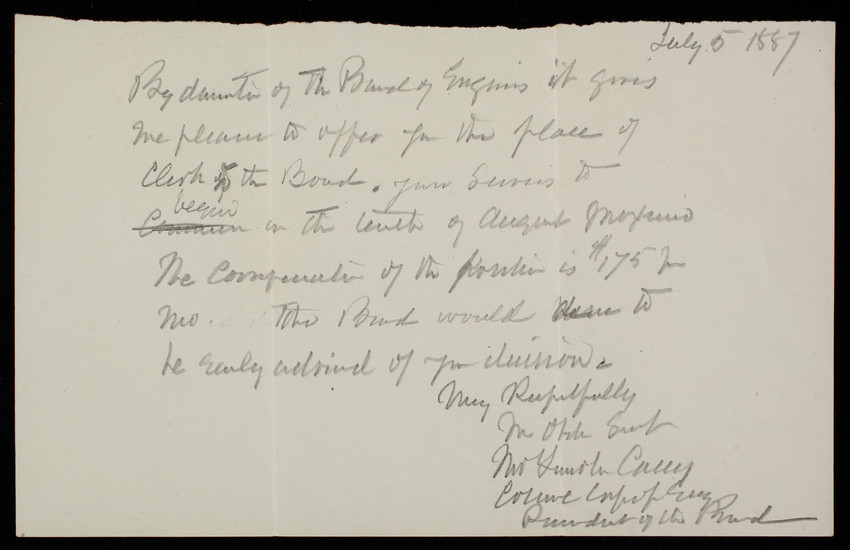 July 5 1887
By direction of the Board of Engineers it gives
me pleasure to offer you the place of
Clerk of the Board. your services to
begin
Commence on the tenth of August proximo
The Compensation of the position is $175 per
mo. and the Board would desire to
be early advised of your decision.
Very Respectfully
Yr Obdt Servt
Thos Lincoln Casey
Colonel Corps of Eng
President of the Board